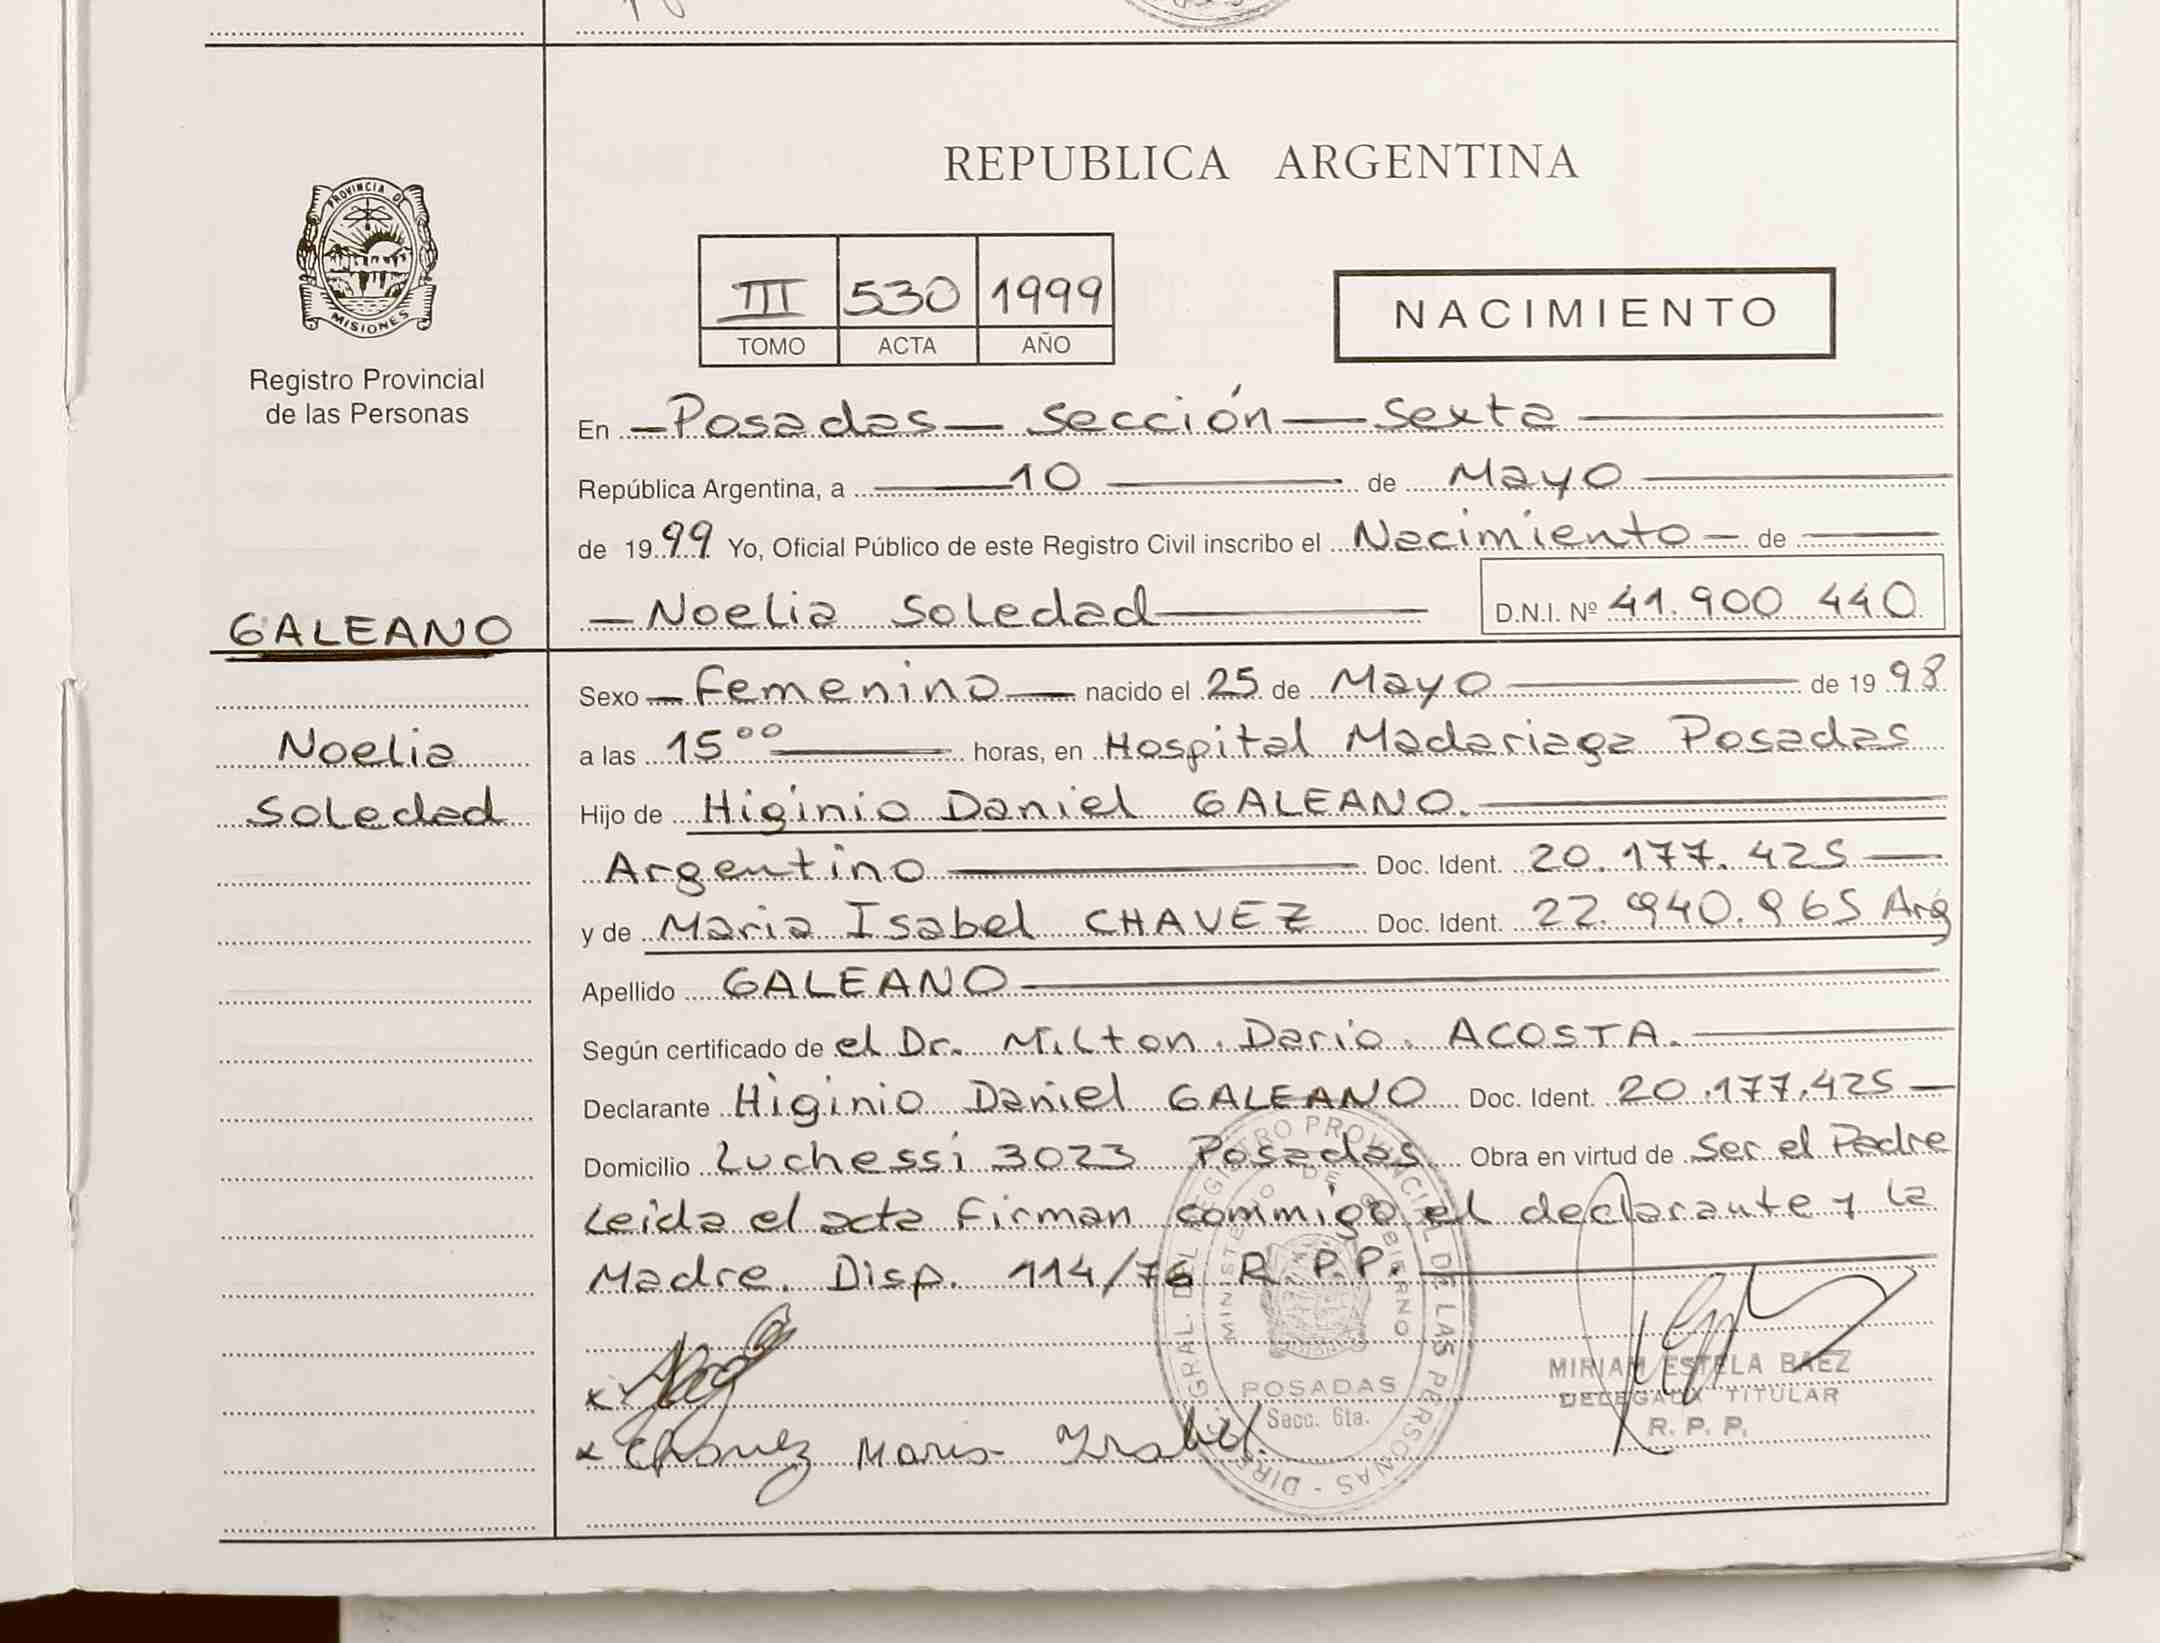 REPUBLICA ARGENTINA
PROVINCIA DE
MISIONES
Registro Provincial
de las Personas
III 530 1999
TOMO ACTA AÑO
NACIMIENTO
En Posadas - sección - Sexta
República Argentina, a 10 de Mayo
de 1999 Yo, Oficial Público de este Registro Civil inscribo el Nacimiento de
Noelia Soledad D.N.I. Nº 41.900 440
GALEANO
Noelia
Soledad
Sexo Femenino nacido el 25 de Mayo de 1998
a las 15⁰⁰ horas, en Hospital Madariaga Posadas
Hijo de Higinio Daniel GALEANO.
Argentino Doc. Ident. 20.177.425
y de Maria Isabel CHAVEZ Doc. Ident. 22.940.965 Arg
Apellido GALEANO
Según certificado de el Dr. Milton Dario ACOSTA.
Declarante Higinio Daniel GALEANO Doc. Ident. 20.177.425
Domicilio Luchessi 3023 Posadas Obra en virtud de Ser el Padre
Leida el acta Firman commigo el declarante y la
Madre. Disp. 114/76 R.P.P.
DIREC. GRAL. DEL REGISTRO PROVINCIAL DE LAS PERSONAS
MINISTERIO DE GOBIERNO
POSADAS
Secc. 6ta.
MIRIAM ESTELA BAEZ
DELEGADA TITULAR
R. P. P.
x
x Chavez Maria Isabel.